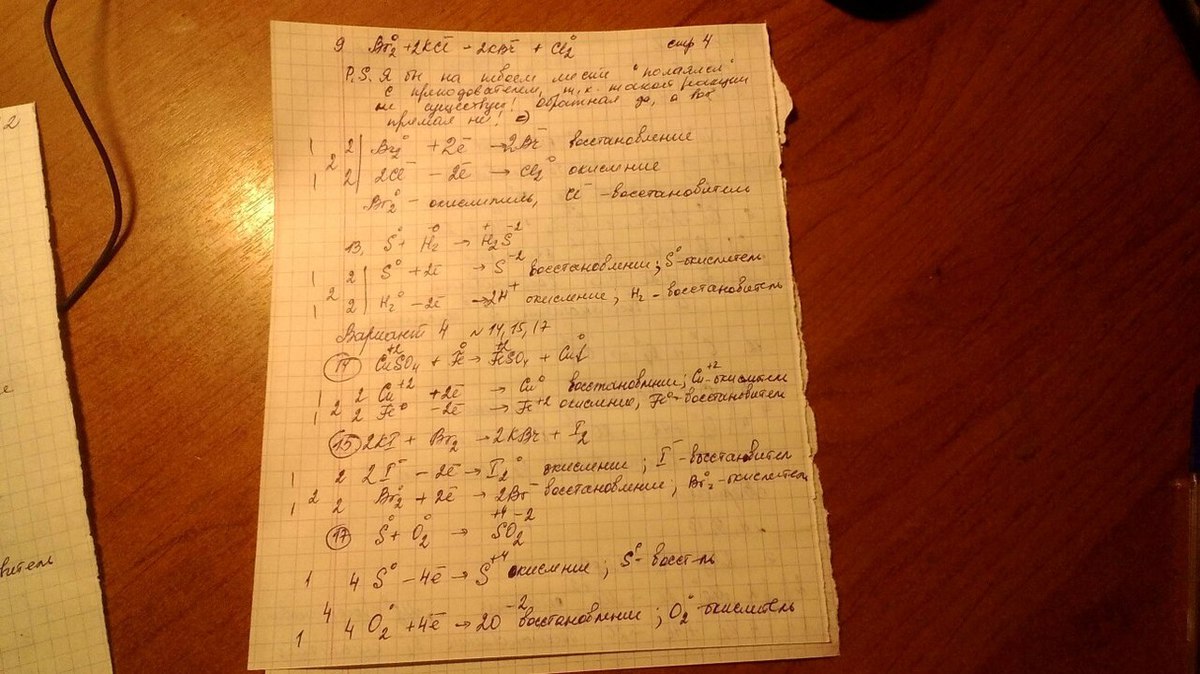 9 Br₂⁰ + 2KCl⁻ → 2KBr⁻ + Cl₂⁰ стр 4
P.S. Я бы на твоем месте "полаялся"
с преподователем, т.к. такой реакции
не существует! Обратная да, а вот
прямая не! =)
1 2 Br₂⁰ + 2ē → 2Br⁻ восстановление
2
1 2 2Cl⁻ − 2ē → Cl₂⁰ окисление
Br₂⁰ - окислитель, Cl⁻ - восстановитель
13, S⁰ + H₂⁰ → H₂⁺S⁻²
1 2 S⁰ + 2ē → S⁻² восстановление; S⁰-окислитель
2
1 2 H₂⁰ − 2ē → 2H⁺ окисление; H₂ - восстановитель
Вариант 4 N 14, 15, 17
14 Cu⁺²SO₄ + Fe⁰ → Fe⁺²SO₄ + Cu⁰
1 2 Cu⁺² + 2ē → Cu⁰ восстановление; Cu⁺²-окислител
2
1 2 Fe⁰ − 2ē → Fe⁺² окисление, Fe⁰ - восстановител
15 2KI + Br₂ → 2KBr + I₂
1 2 2I⁻ − 2ē → I₂⁰ окисление; I⁻ - восстановител
2
1 2 Br₂⁰ + 2ē → 2Br⁻ восстановление; Br₂⁰ - окислитель
17 S⁰ + O₂⁰ → S⁺⁴O₂⁻²
1 4 S⁰ − 4ē → S⁺⁴ окисление; S⁰ - восст-ль
4
1 4 O₂⁰ + 4ē → 2O⁻² восстановление; O₂⁰ окислитель
2
е
витель